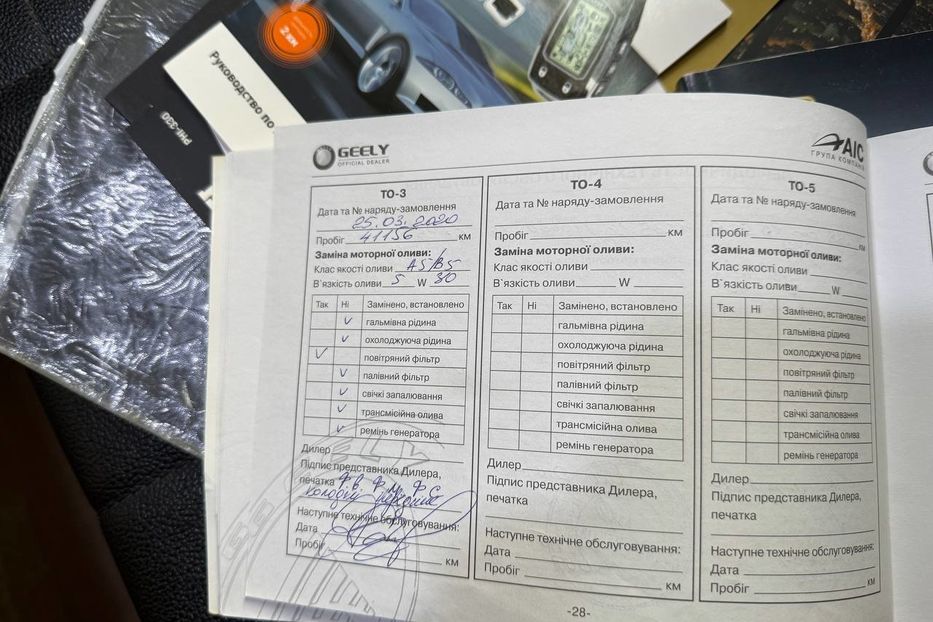 2 KH
Руководство по
PHI-330
GEELY
OFFICIAL DEALER
AIC
ГРУПА КОМПАНІЙ
ТО-3
Дата та № наряду-замовлення
25.03.2020
Пробіг 41156 км
Заміна моторної оливи:
Клас якості оливи A5/B5
В`язкість оливи 5 W 30
Так Ні Замінено, встановлено
гальмівна рідина
охолоджуюча рідина
повітряний фільтр
палівний фільтр
свічкі запалювання
трансмісійна олива
ремінь генератора
Дилер
Підпис представника Дилера,
печатка Ф.В. Ф.М. Ф.С.
колодки передние
Наступне технічне обслуговування:
Дата
Пробіг км
ТО-4
Дата та № наряду-замовлення
Пробіг км
Заміна моторної оливи:
Клас якості оливи
В`язкість оливи W
Так Ні Замінено, встановлено
гальмівна рідина
охолоджуюча рідина
повітряний фільтр
палівний фільтр
свічкі запалювання
трансмісійна олива
ремінь генератора
Дилер
Підпис представника Дилера,
печатка
Наступне технічне обслуговування:
Дата
Пробіг км
ТО-5
Дата та № наряду-замовлення
Пробіг км
Заміна моторної оливи:
Клас якості оливи
В`язкість оливи W
Так Ні Замінено, встановлено
гальмівна рідина
охолоджуюча рідина
повітряний фільтр
палівний фільтр
свічкі запалювання
трансмісійна олива
ремінь генератора
Дилер
Підпис представника Дилера,
печатка
Наступне технічне обслуговування:
Дата
Пробіг км
-28-